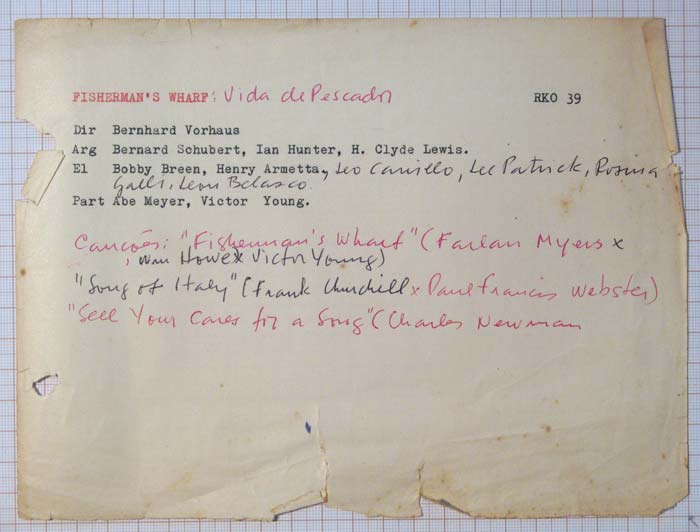 FISHERMAN'S WHARF: Vida de Pescador RKO 39
Dir Bernhard Vorhaus
Arg Bernard Schubert, Ian Hunter, H. Clyde Lewis.
El Bobby Breen, Henry Armetta, Leo Carrillo, Lee Patrick, Rosina
Galli, Leon Belasco.
Part Abe Meyer, Victor Young.
Canções: "Fisherman's Wharf" (Farlan Myers x
, Wm Howe x Victor Young)
"Song of Italy" (Frank Churchill x Paul Francis Webster)
"Sell Your Cares for a Song" (Charles Newman